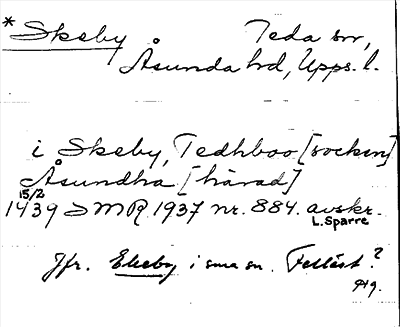 * Skeby Teda sn,
Åsunda hd, Upps. l.
i Skeby, Tedhboo [socken]
Åsundha [härad]
15/2
1439 SMR 1937 nr. 884. avskr.
L. Sparre
Jfr. Ekeby i sma sn. Felläst?